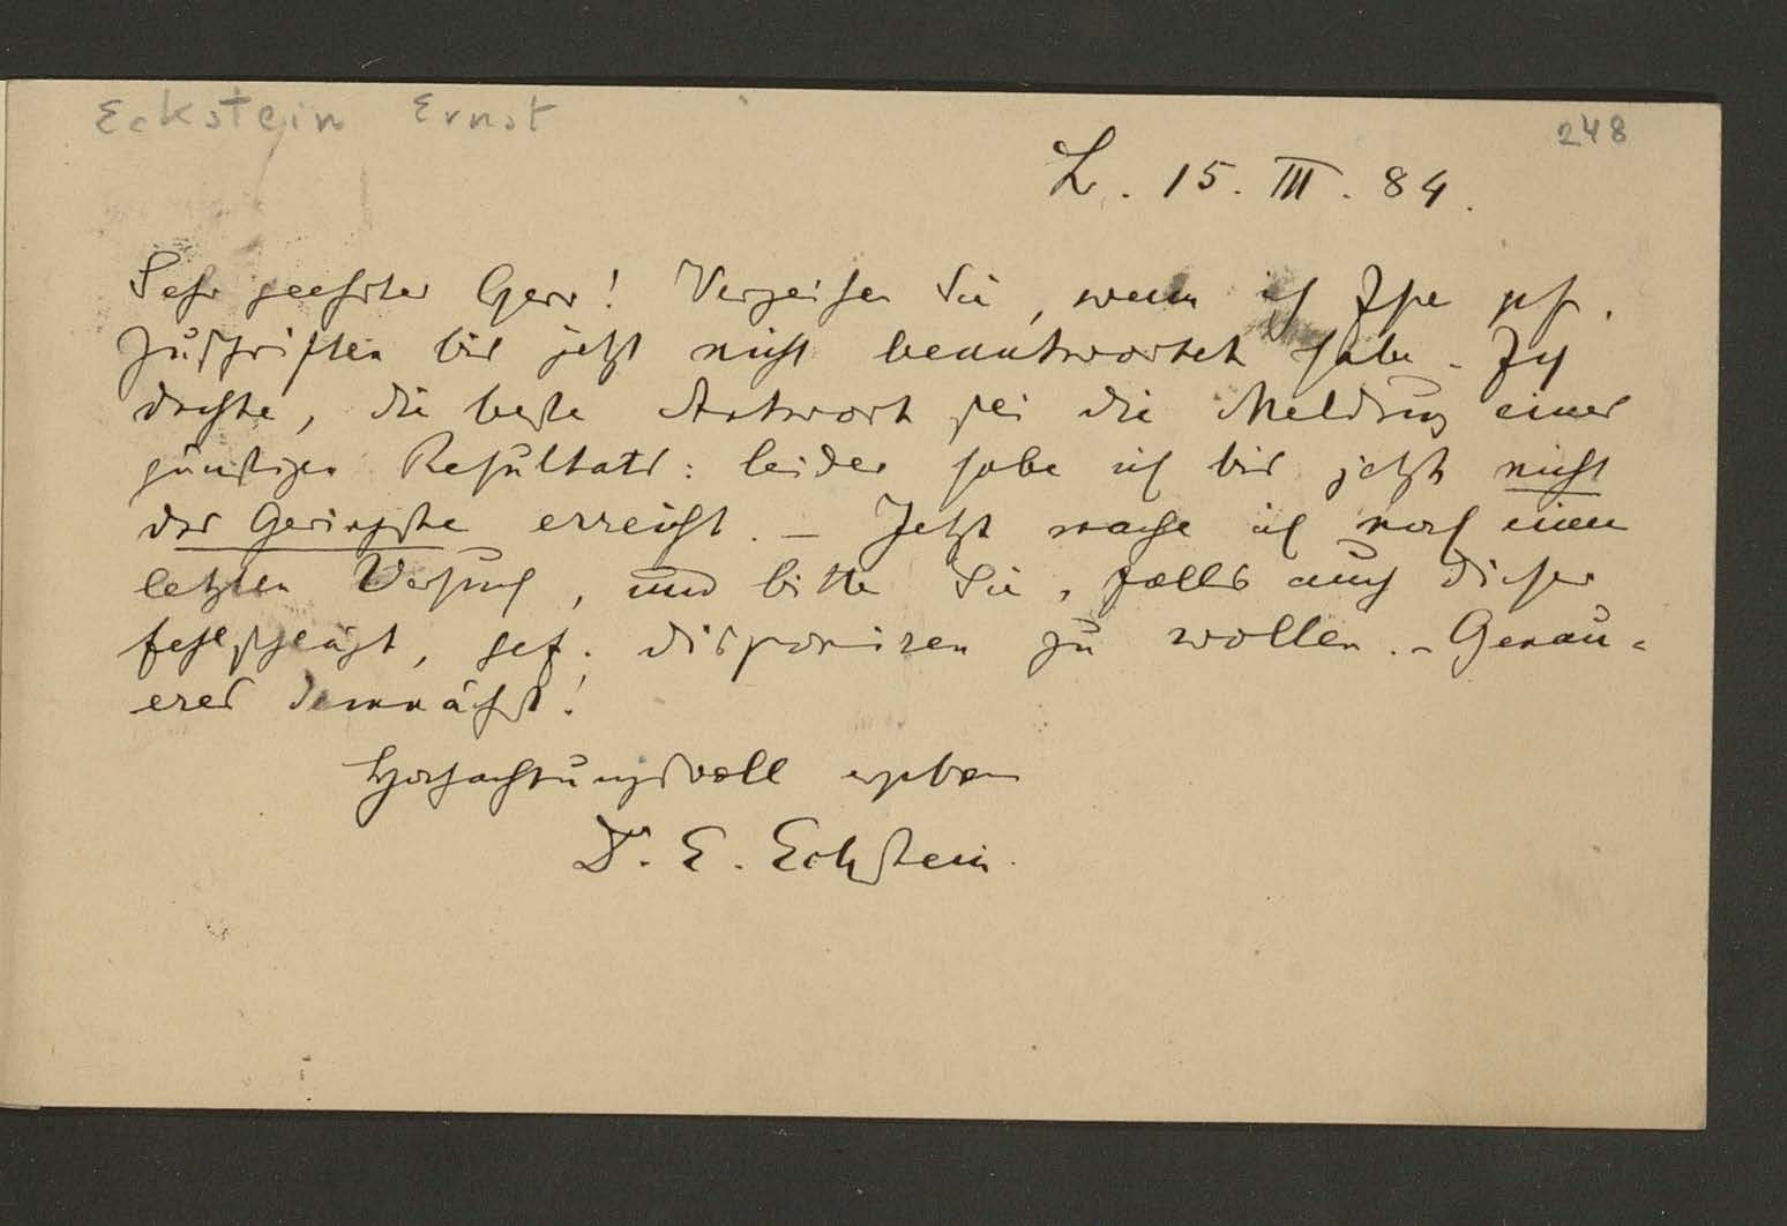 Eckstein Ernst
248
L. 15. III. 84.
Sehr geehrter Herr! Verzeihen Sie, wenn ich Ihre
Zuschriften bis jetzt nicht beantwortet habe. Ich
dachte, die beste Antwort sei die Meldung eines
günstigen Resultats: leider habe ich bis jetzt nicht
das Geringste erreicht. – Jetzt mache ich noch einen
letzten Versuch, und bitte Sie, falls auch dieser
fehlschlägt, gef. disponiren zu wollen. – Genau-
eres demnächst!
Hochachtungsvoll
Dr. E. Eckstein.